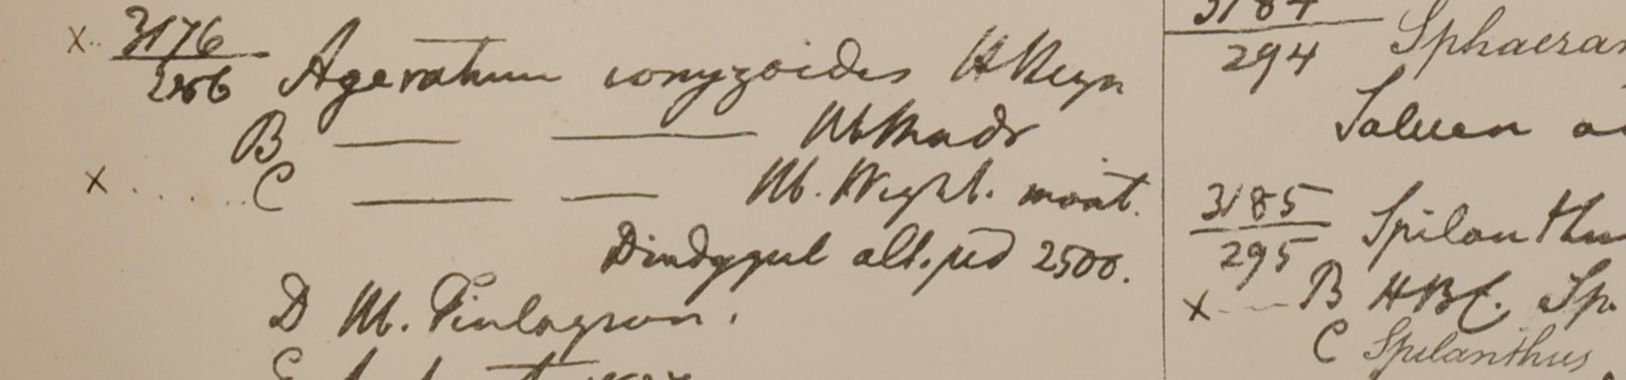 x.. 3176
286 Ageratum conyzoides H Heyn
B — — Hb Madr
x . . . . . C — — Hb. Wight. mont.
Dindygul alt. ped 2500.
D Hb. Finlayson.
3184
294 Sphaeran
Saluen
3185
295 Spilanthu
x B HBC. Sp.
C Spilanthus